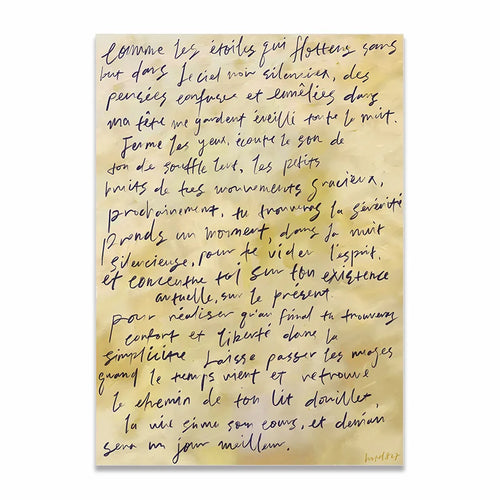 Comme les étoiles qui flottent sans
but dans le ciel noir silencieux, des
pensées confuses et emêlées dans
ma tête me gardent éveillé toute la nuit.
Ferme les yeux, écoute le son de
ton souffle lent, les petits
bruits de tes mouvements gracieux,
prochainement, tu trouveras la sérénité
Prends un moment, dans la nuit
silencieuse, pour te vider l'esprit.
et concentre toi sur ton existence
actuelle, sur le présent.
pour réaliser qu'au final tu trouveras
confort et liberté dans la
simplicité. Laisse passer les nuages
quand le temps vient et retrouve
le chemin de ton lit douillet,
la vie suivra son cours, et demain
sera un jour meilleur.